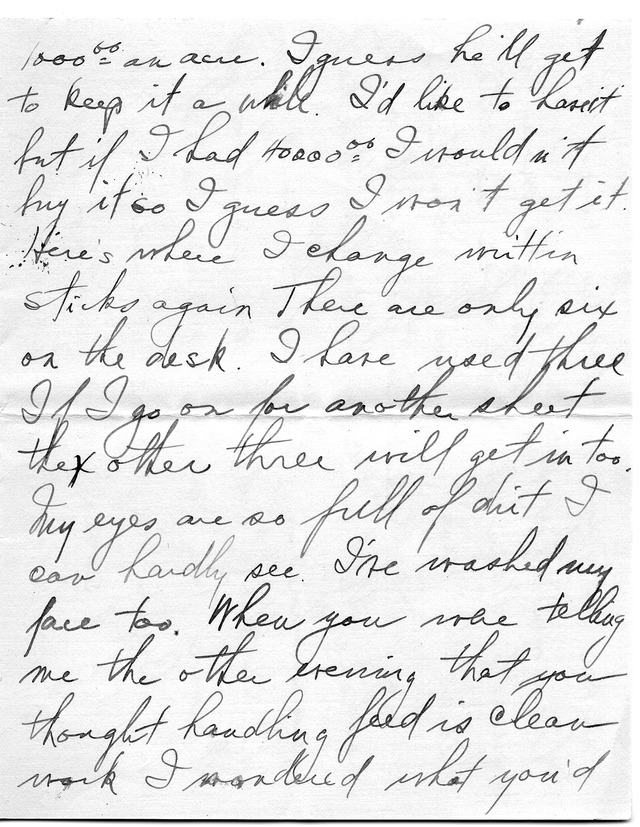 1000⁰⁰ an acre. I guess he'll get
to keep it a while. I'd like to have it
but if I had 40000⁰⁰ I wouldn't
buy it so I guess I won't get it.
Here's where I change writtin
sticks again There are only six
on the desk. I have used three
If I go on for another sheet
the other three will get in too.
My eyes are so full of dirt I
can hardly see. I've washed my
face too. When you were telling
me the other evening that you
thought handling feed is clean
work I wondered what you'd